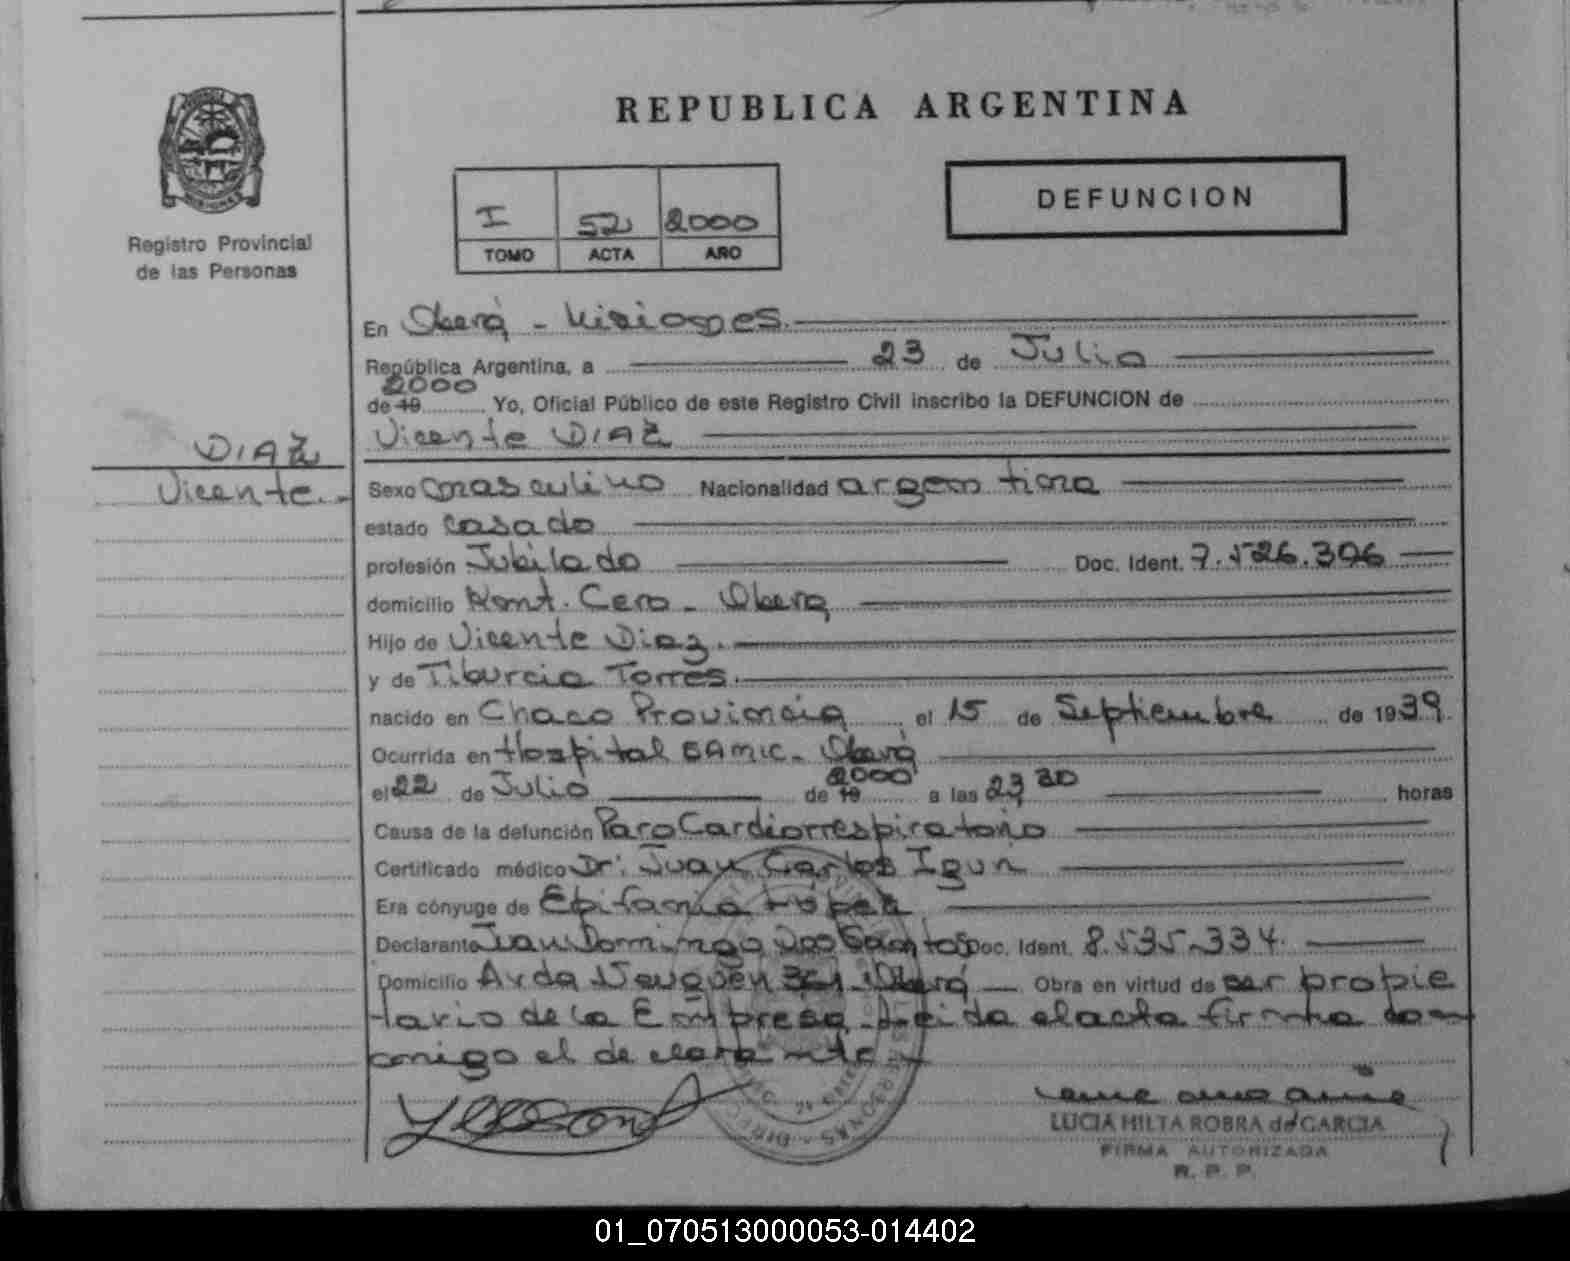 REPUBLICA ARGENTINA
Registro Provincial
de las Personas
I 52 2000
TOMO ACTA AÑO
DEFUNCION
En Oberá - Misiones.
República Argentina, a 23 de Julio
2000
de 19 Yo, Oficial Público de este Registro Civil inscribo la DEFUNCION de
Vicente DIAZ
DIAZ
Vicente.-
Sexo masculino Nacionalidad argentina
estado casado
profesión Jubilado Doc. Ident. 7.526.396
domicilio Cero - Oberá
Hijo de Vicente Diaz.
y de Tiburcia Torres.
nacido en Chaco Provincia el 15 de Septiembre de 1939.
Ocurrida en Hospital SAMIC - Oberá
2000
el 22 de Julio de 19 a las 23 30 horas
Causa de la defunción Paro Cardiorrespiratorio
Certificado médico Dr: Juan Carlos Igun
Era cónyuge de Epifania López
Declarante Juan Domingo Dos Santos Doc. Ident. 8.535.334
Domicilio Avda Neuquén Oberá Obra en virtud de ser propie
tario de la Empresa. Leída el acta firma con
migo el declarante
LUCIA HILTA ROBRA de GARCIA
FIRMA AUTORIZADA
R. P. P.
01_070513000053-014402